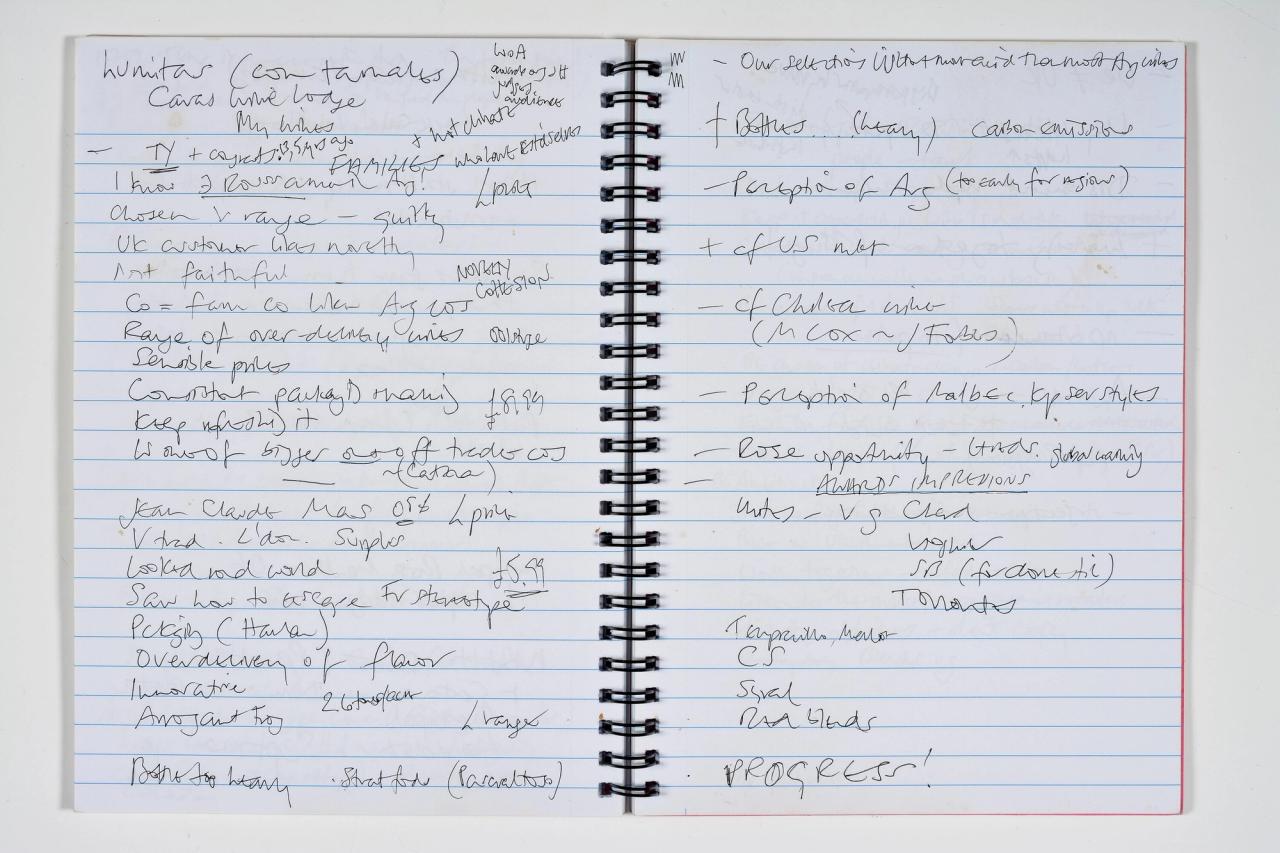 humitas (corn tamales)
Cavas Wine Lodge
My wines
WoA
awards
judges
audience
+ hot climate
— TY + congrats. 13, 5 yrs ago
FAMILIES who have
I know Roussanne in Arg!
L price
Chosen V range — quirky
UK customer likes novelty
Not faithful
NOVELTY
COHESION
Co = fam co like Arg cos
Range of over-delivery wines
Sensible prices
Consistent packaging £8.99
Keep refreshing it
is one of bigger off trade cos
~(Catena)
Jean Claude Mas L price
V trad. L'doc. Supplier
Looked round world £5.99
Saw how to escape Fr stereotype
Pckging (Harlan)
Overdelivery of flavor
Innovative
Arrogant Frog L range
Bottle too heavy . Stratfords (Pascual Toso)
— Our selection
+ Bottles ... (heavy) carbon emissions
— Perception of Arg (too early for regions)
+ cf US mkt
— cf Chilean wine
(M Cox ~ J Forbes)
— Perception of Malbec. styles
— Rose opportunity — trends. global warming
— AWARDS IMPRESSIONS
Whites — V g Chard
Viognier
SB (for domestic)
Torrontes
Tempranillo, Merlot
CS
Syrah
Red blends
. PROGRESS!